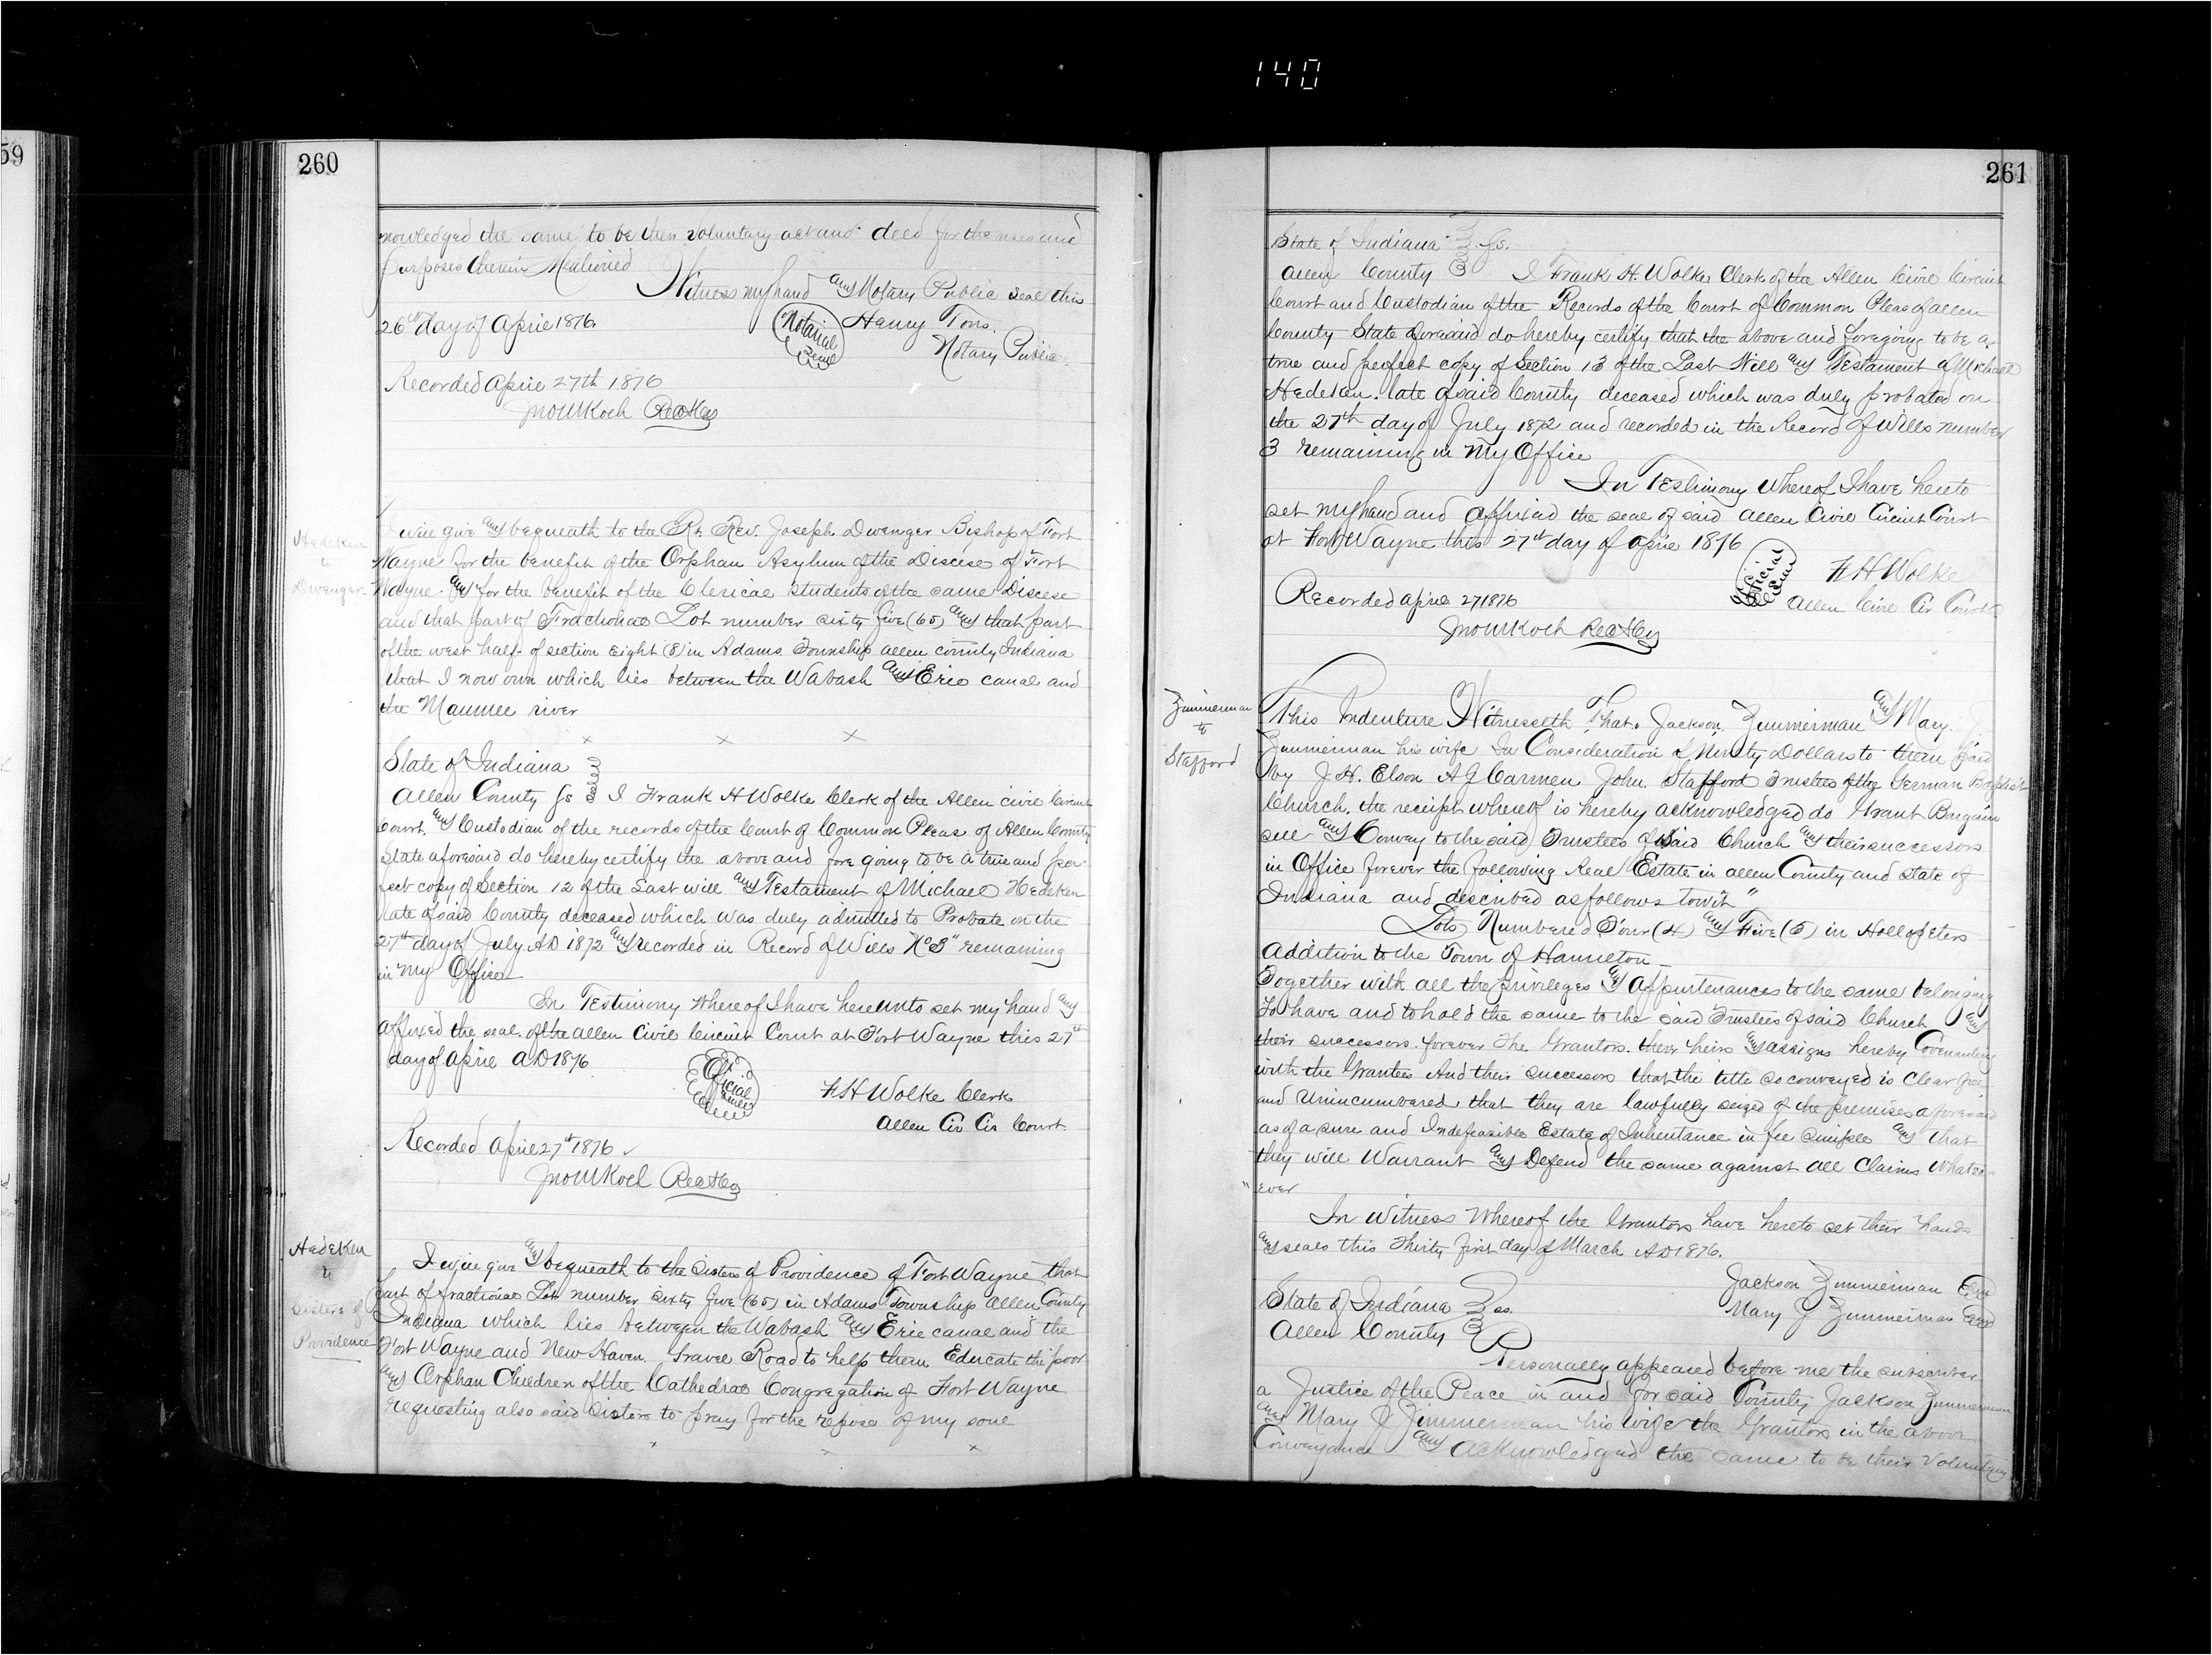 140
59
260
nowledged the same to be their voluntary act and deed for the uses and
purposes therein Mentioned
Witness my hand and Notary Public seal this
26th day of April 1876.
Notarial Seal
Henry
Notary Public
Recorded April 27th 1876
Jno M Koch Rec
Hedeken
to
Dwenger
I will give and bequeath to the Rt. Rev. Joseph Dwenger Bishop of Fort
Wayne for the benefit of the Orphan Asylum of the Diocese of Fort
Wayne and for the benefit of the Clerical students of the same Diocese
and that part of Fractional Lot number sixty five (65) and that part
of the west half of section Eight (8) in Adams Township Allen county Indiana
that I now own which lies between the Wabash and Erie canal and
the Maumee river
x x x
State of Indiana
Allen County ss I Frank H Wolke Clerk of the Allen civil Circuit
Court, and Custodian of the records of the Court of Common Pleas of Allen County
State aforesaid do hereby certify the above and fore going to be a true and per
fect copy of Section 12 of the Last will and Testament of Michael Hedeken
late of said County deceased which was duly admitted to Probate on the
27th day of July AD 1872 and recorded in Record of Wills No 3" remaining
in my Office
In Testimony Whereof I have here unto set my hand and
affixed the seal of the Allen Civil Circuit Court at Fort Wayne this 27th
day of April AD 1876
Official Seal
F H Wolke Clerk
Allen Civ Cir Court
Recorded April 27th 1876
Jno M Koch Rec
Hedeken
to
Sisters of
Providence
I will give and bequeath to the Sisters of Providence of Fort Wayne that
part of fractional Lot number sixty five (65) in Adams Township Allen County
Indiana which lies between the Wabash and Erie canal and the
Fort Wayne and New Haven Gravel Road to help them Educate the poor
and Orphan Children of the Cathedral Congregation of Fort Wayne
requesting also said Sisters to pray for the repose of my soul
x x x
261
State of Indiana ss.
Allen County I Frank H. Wolke Clerk of the Allen Civil Circuit
Court and Custodian of the Records of the Court of Common Pleas of Allen
County State aforesaid do hereby certify that the above and foregoing to be a
true and perfect copy of Section 13 of the Last Will and Testament of Michael
Hedeken late of said County deceased which was duly probated on
the 27th day of July 1872 and recorded in the Record of Wills number
3 remaining in my Office
In Testimony Whereof I have hereto
set my hand and affixed the seal of said Allen Civil Circuit Court
at Fort Wayne this 27th day of April 1876
Official Seal
F H Wolke
Allen Civil Cir Court
Recorded April 27 1876
Jno M Koch Rec
Zimmerman
to
Stafford
This Indenture Witnesseth That. Jackson. Zimmerman and Mary
Zimmerman his wife In Consideration of Ninety Dollars to them paid
by J. H. Elson A G Carmen John. Stafford Trustees of the German Baptist
Church. the receipt whereof is hereby acknowledged do Grant Bargain
sell and Convey to the said Trustees of said Church and their successors
in Office forever the following Real Estate in Allen County and State of
Indiana and described as follows towit"
Lots Numbered Four (4) and Five (5) in Hollopeters
Addition to the Town of Hamelton
Together with all the privileges and appurtenances to the same belonging
To have and to hold the same to the said Trustees of said Church and
their successors forever The Grantors. their heirs and assigns hereby Covenanting
with the Grantees And their successors that the title so conveyed is Clear free
and Unincumbered that they are lawfully seized of the premises aforesaid
as of a sure and Indefeasible Estate of Inheritance in fee simple and that
they will Warrant and Defend the same against all Claims Whatso
" ever
In Witness Whereof the Grantors have hereto set their hands
and seals this Thirty first day of March AD 1876.
Jackson Zimmerman
Mary J Zimmerman
State of Indiana ss.
Allen County
Personally appeared before me the subscriber
a Justice of the Peace in and for said County Jackson Zimmerman
and Mary J Zimmerman his wife the Grantors in the above
Conveyance and acknowledged the same to be their Voluntary